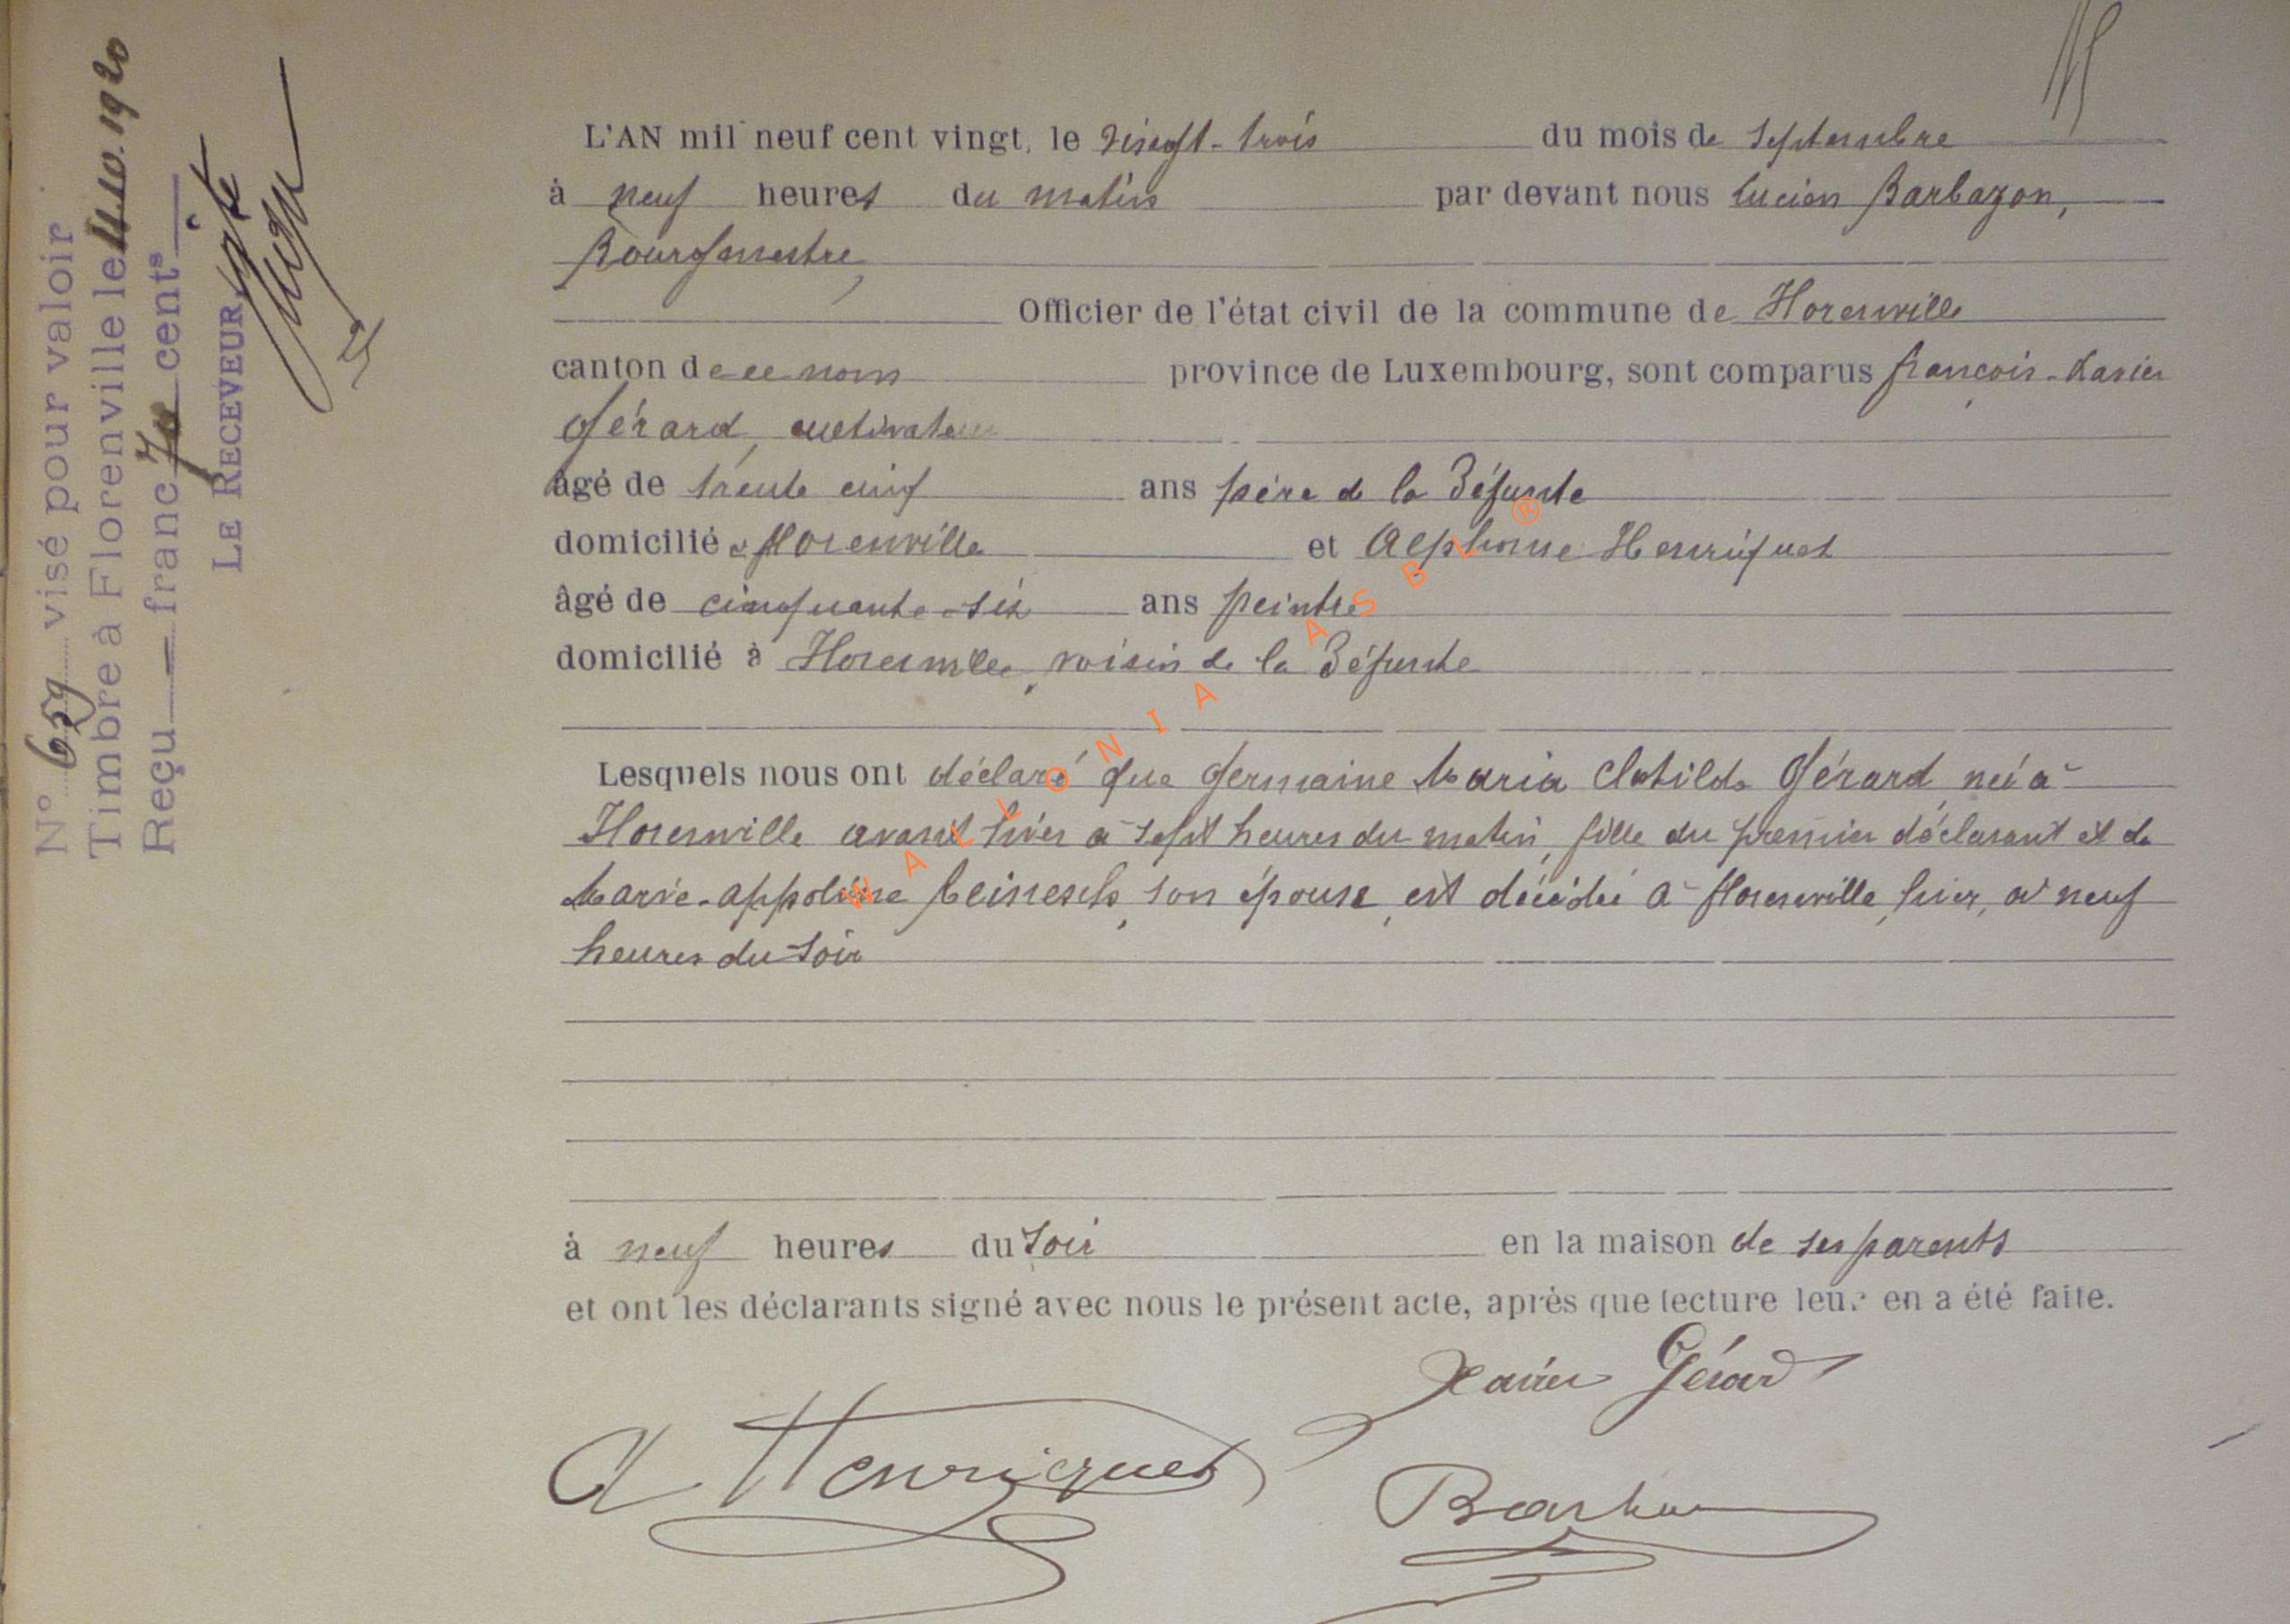 L'AN mil neuf cent vingt, le vingt-trois du mois de septembre
à neuf heures du matin par devant nous Lucien Barbazon,
Bourgmestre,
Officier de l'état civil de la commune de Florenville
canton de ce nom province de Luxembourg, sont comparus françois-Xavier
Gérard, cultivateur
âgé de trente cinq ans père de la défunte
domicilié à florenville et Alphonse Henriquet
âgé de cinquante-six ans peintre
domicilié à Florenville, voisin de la défunte
Lesquels nous ont déclaré que Germaine Maria Clotilde Gérard née à
Florenville avant hier à sept heures du matin, fille du premier déclarant et de
Marie-appoline son épouse, est décédée à florenville, hier, à neuf
heures du soir
à neuf heures du soir en la maison de ses parents
et ont les déclarants signé avec nous le présent acte, après que lecture leur en a été faite.
Xavier Gérard
A Henricquet
N° 659 visé pour valoir
Timbre à Florenville le 4.10.1920
Reçu — franc cents
LE RECEVEUR
WALLONIA ASBL ®